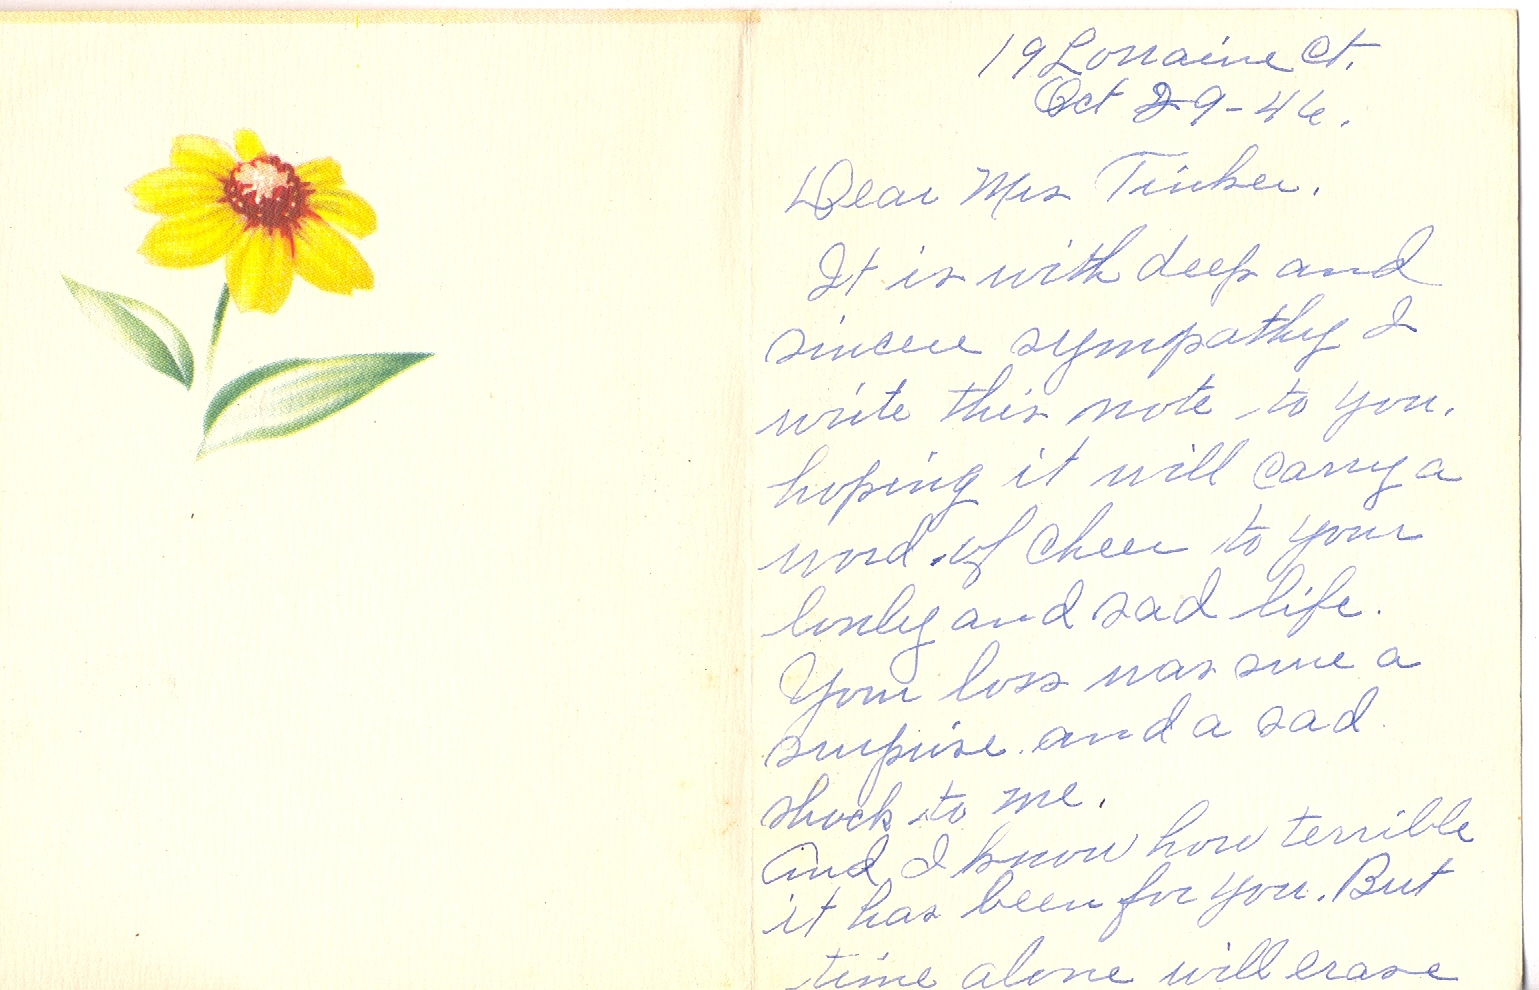 19 Lorraine Ct.
Oct 29-46.
Dear Mrs Tinker.
It is with deep and
sincere sympathy I
write this note to you,
hoping it will carry a
word of cheer to your
lonly and sad life.
Your loss was sure a
surprise and a sad
shock to me.
And I know how terrible
it has been for you. But
time alone will erase